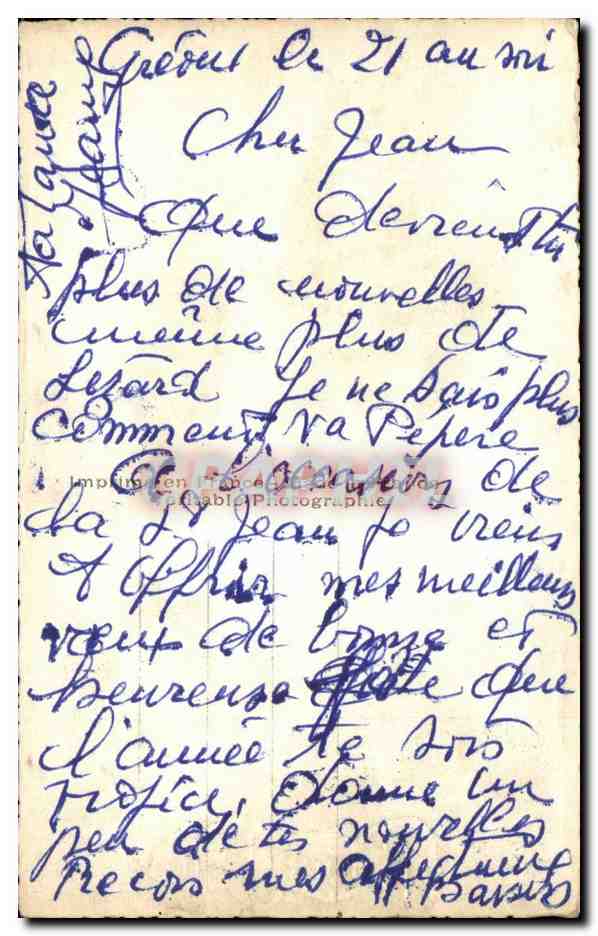 le 21 au soir
Cher Jean
Que deviens tu
plus de nouvelles
même plus de
Lezard Je ne sais plus
comment va Pépère
A l'occasion de
la St Jean je viens
t offrir mes meilleurs
vœux de bonne et
heureuse fête que
l'année te sois
propice, donne un
peu de tes nouvelles
Recois mes affectueux
baisers
Ta
Jeanne
Imprimé en France
Véritable Photographie